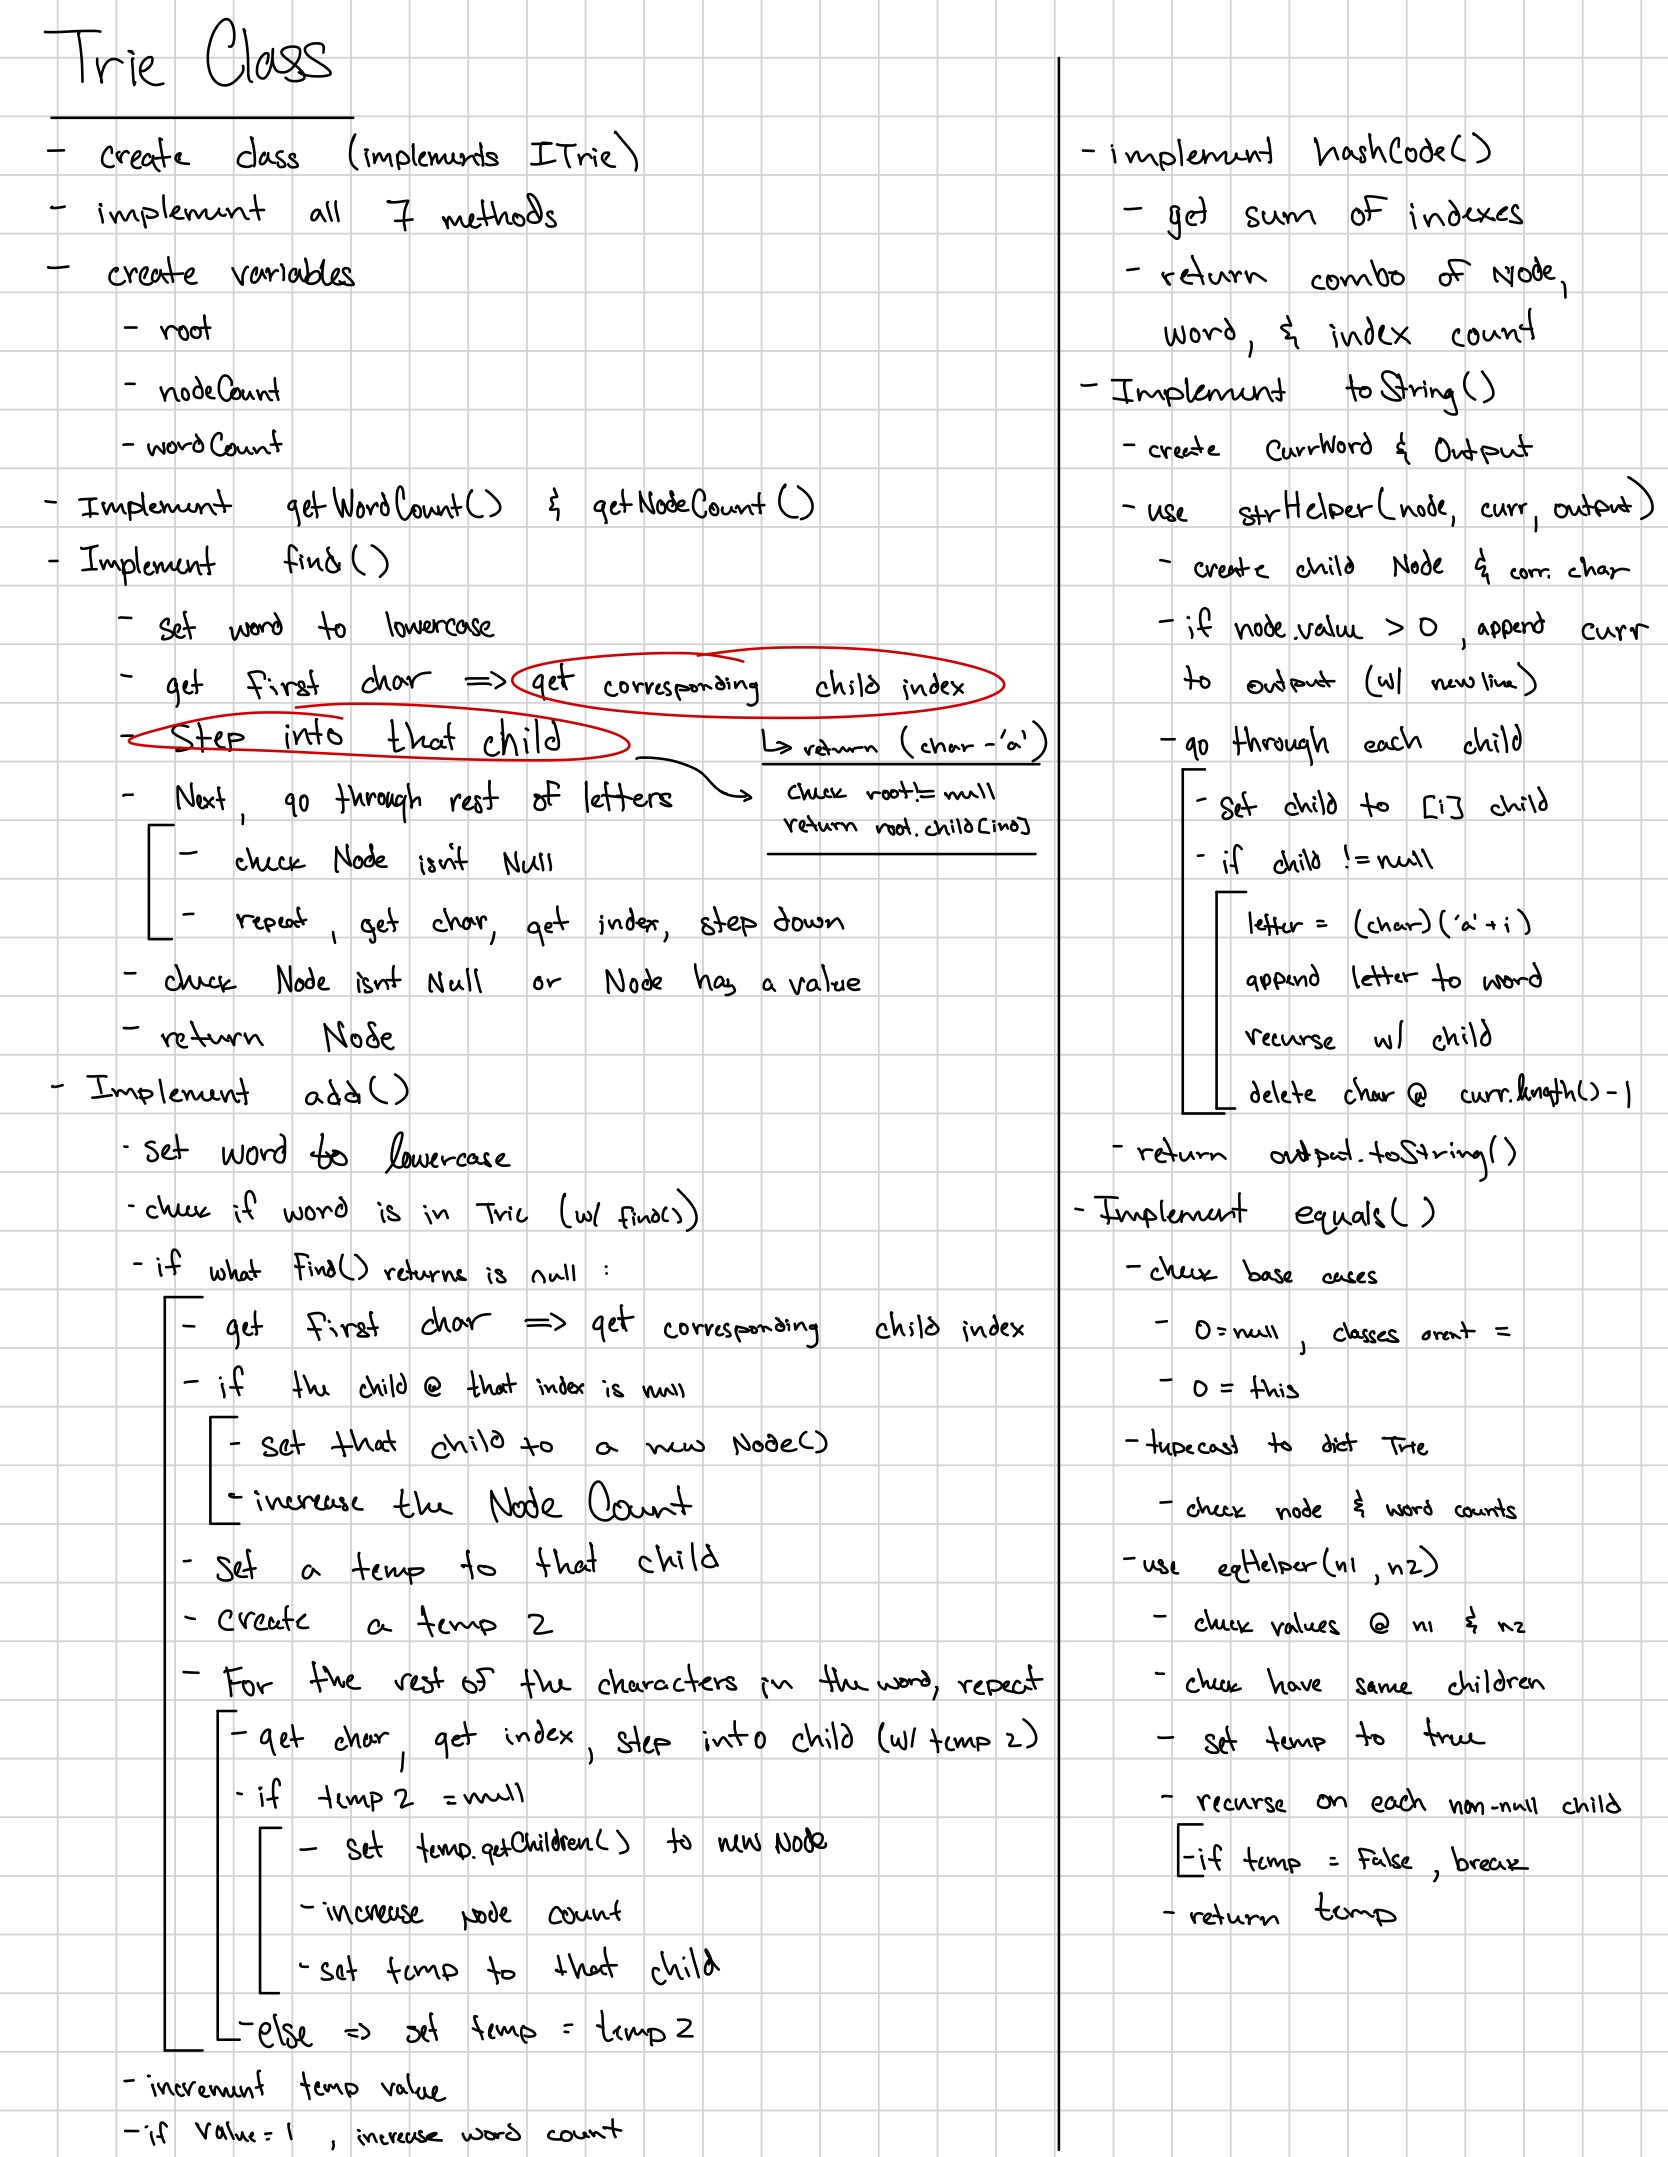 Trie Class
- create class (implements ITrie)
- implement all 7 methods
- create variables
- root
- nodeCount
- wordCount
- Implement getWordCount() & getNodeCount()
- Implement find()
- set word to lowercase
- get first char => get corresponding child index
- Step into that child
↳ return (char - 'a')
check root != null
return root.child[ind]
- Next, go through rest of letters
- check Node isn't Null
- repeat, get char, get index, step down
- check Node isn't Null or Node has a value
- return Node
- Implement add()
- set word to lowercase
- check if word is in Trie (w/ find())
- if what find() returns is null :
- get first char => get corresponding child index
- if the child @ that index is null
- set that child to a new Node()
- increase the Node Count
- set a temp to that child
- create a temp 2
- For the rest of the characters in the word, repeat
- get char, get index, step into child (w/ temp 2)
- if temp 2 = null
- set temp.getChildren() to new Node
- increase Node count
- set temp to that child
- else => set temp = temp 2
- increment temp value
- if value = 1, increase word count
- implement hashCode()
- get sum of indexes
- return combo of Node,
word, & index count
- Implement toString()
- create CurrWord & Output
- use strHelper(node, curr, output)
- create child Node & corr. char
- if node.value > 0, append curr
to output (w/ newline)
- go through each child
- set child to [i] child
- if child != null
letter = (char)('a' + i)
append letter to word
recurse w/ child
delete char @ curr.length() - 1
- return output.toString()
- Implement equals()
- check base cases
- O = null, classes arent =
- O = this
- typecast to dict Trie
- check node & word counts
- use eqHelper(n1, n2)
- check values @ n1 & n2
- check have same children
- set temp to true
- recurse on each non-null child
- if temp = False, break
- return temp